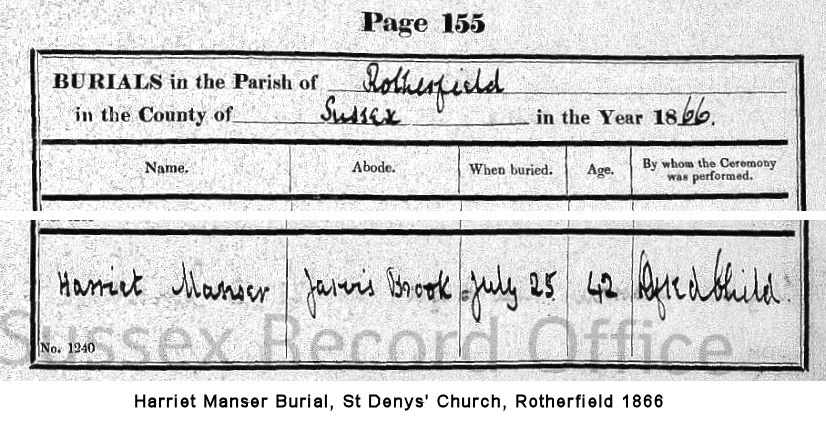 Page 155
BURIALS in the Parish of Rotherfield
in the County of Sussex in the Year 1866.
Name. Abode. When buried. Age. By whom the Ceremony
was performed.
Harriet Manser Jarvis Brook July 25 42 Child.
Sussex Record Office
No. 1240
Harriet Manser Burial, St Denys' Church, Rotherfield 1866